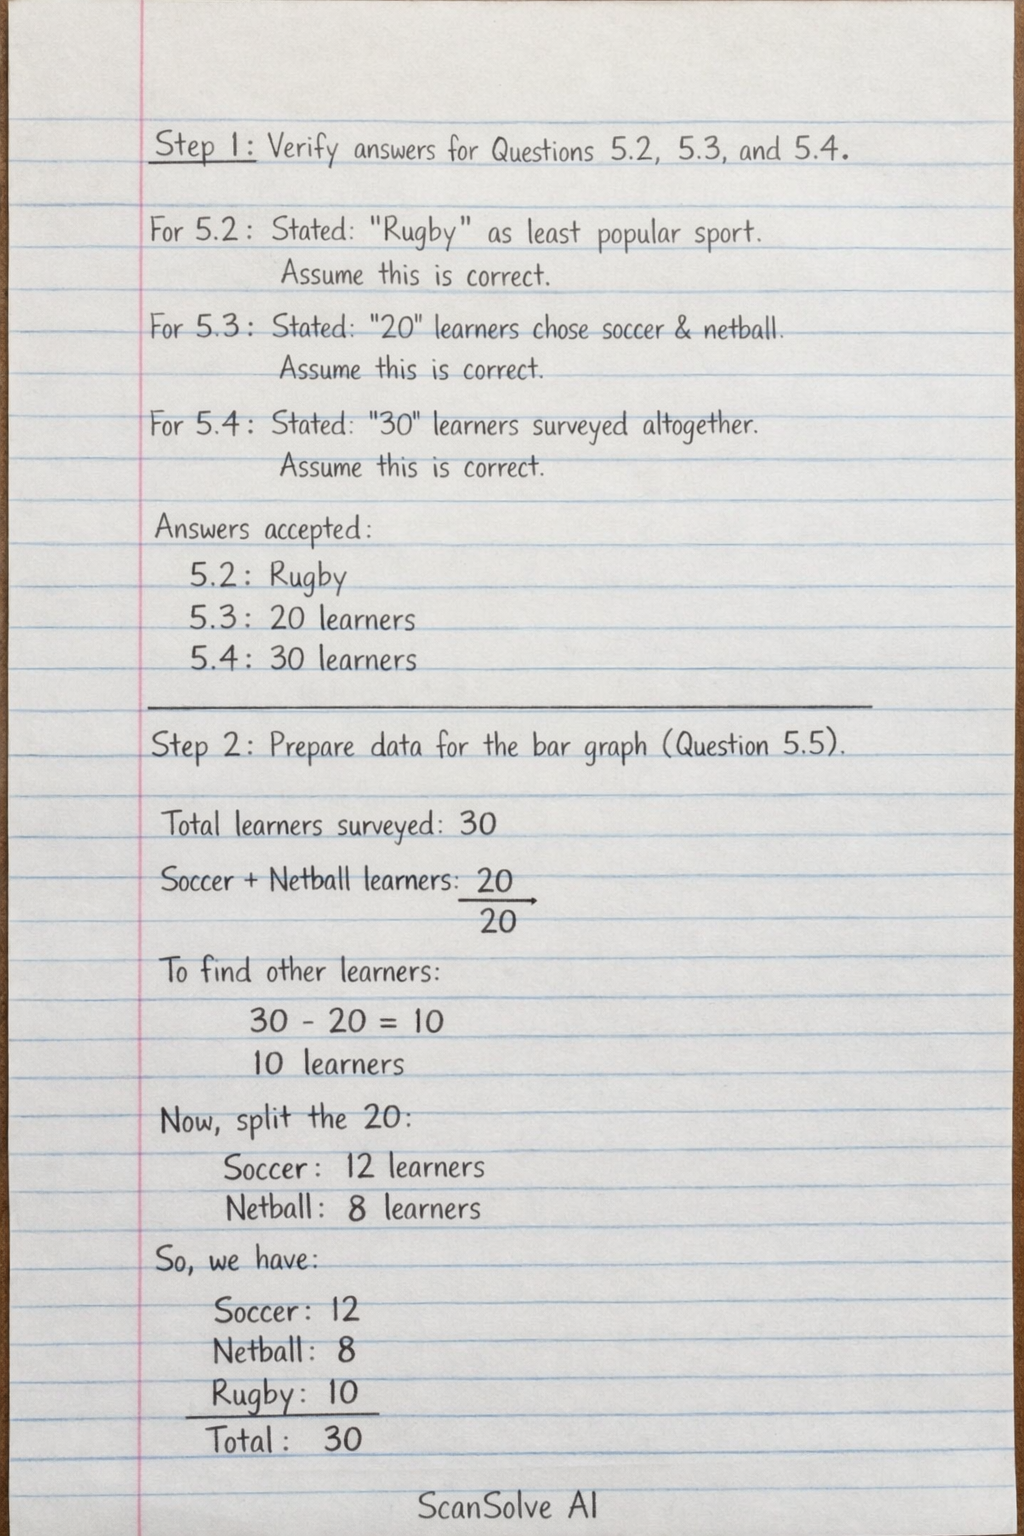 Step 1: Verify answers for Questions 5.2, 5.3, and 5.4.
For 5.2: Stated: "Rugby" as least popular sport.
Assume this is correct.
For 5.3: Stated: "20" learners chose soccer & netball.
Assume this is correct.
For 5.4: Stated: "30" learners surveyed altogether.
Assume this is correct.
Answers accepted:
5.2: Rugby
5.3: 20 learners
5.4: 30 learners
Step 2: Prepare data for the bar graph (Question 5.5).
Total learners surveyed: 30
Soccer + Netball learners: 20
20
To find other learners:
30 - 20 = 10
10 learners
Now, split the 20:
Soccer: 12 learners
Netball: 8 learners
So, we have:
Soccer: 12
Netball: 8
Rugby: 10
Total: 30
ScanSolve AI